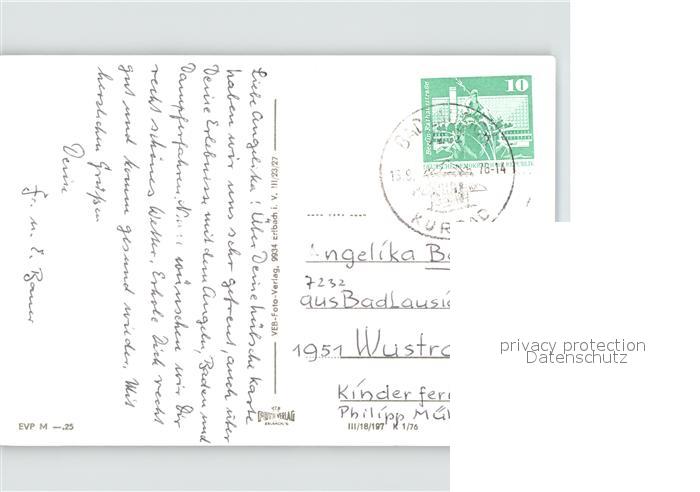 Liebe Angelika! Über Deine hübsche Karte
haben wir uns sehr gefreut, auch über
Deine Erlebnisse mit dem Angeln, Baden und
Dampferfahren. Nun wünschen wir Dir
recht schönes Wetter. Erhole Dich recht
gut und komm gesund wieder. Mit
herzlichen Grüßen
Deine
G. u. E. Bauer
VEB-Foto-Verlag, 9934 Erlbach i. V. III/23/27
EVP M —.25
10
Berlin, Rathausstraße
BAD
78-14
KURBAD
Angelika Ba
7232
aus Bad Lausi
1951 Wustra
Kinderfer
Philipp Mül
VEB
FOTO-VERLAG
ERLBACH/V.
III/18/197 K 1/76
privacy protection
Datenschutz